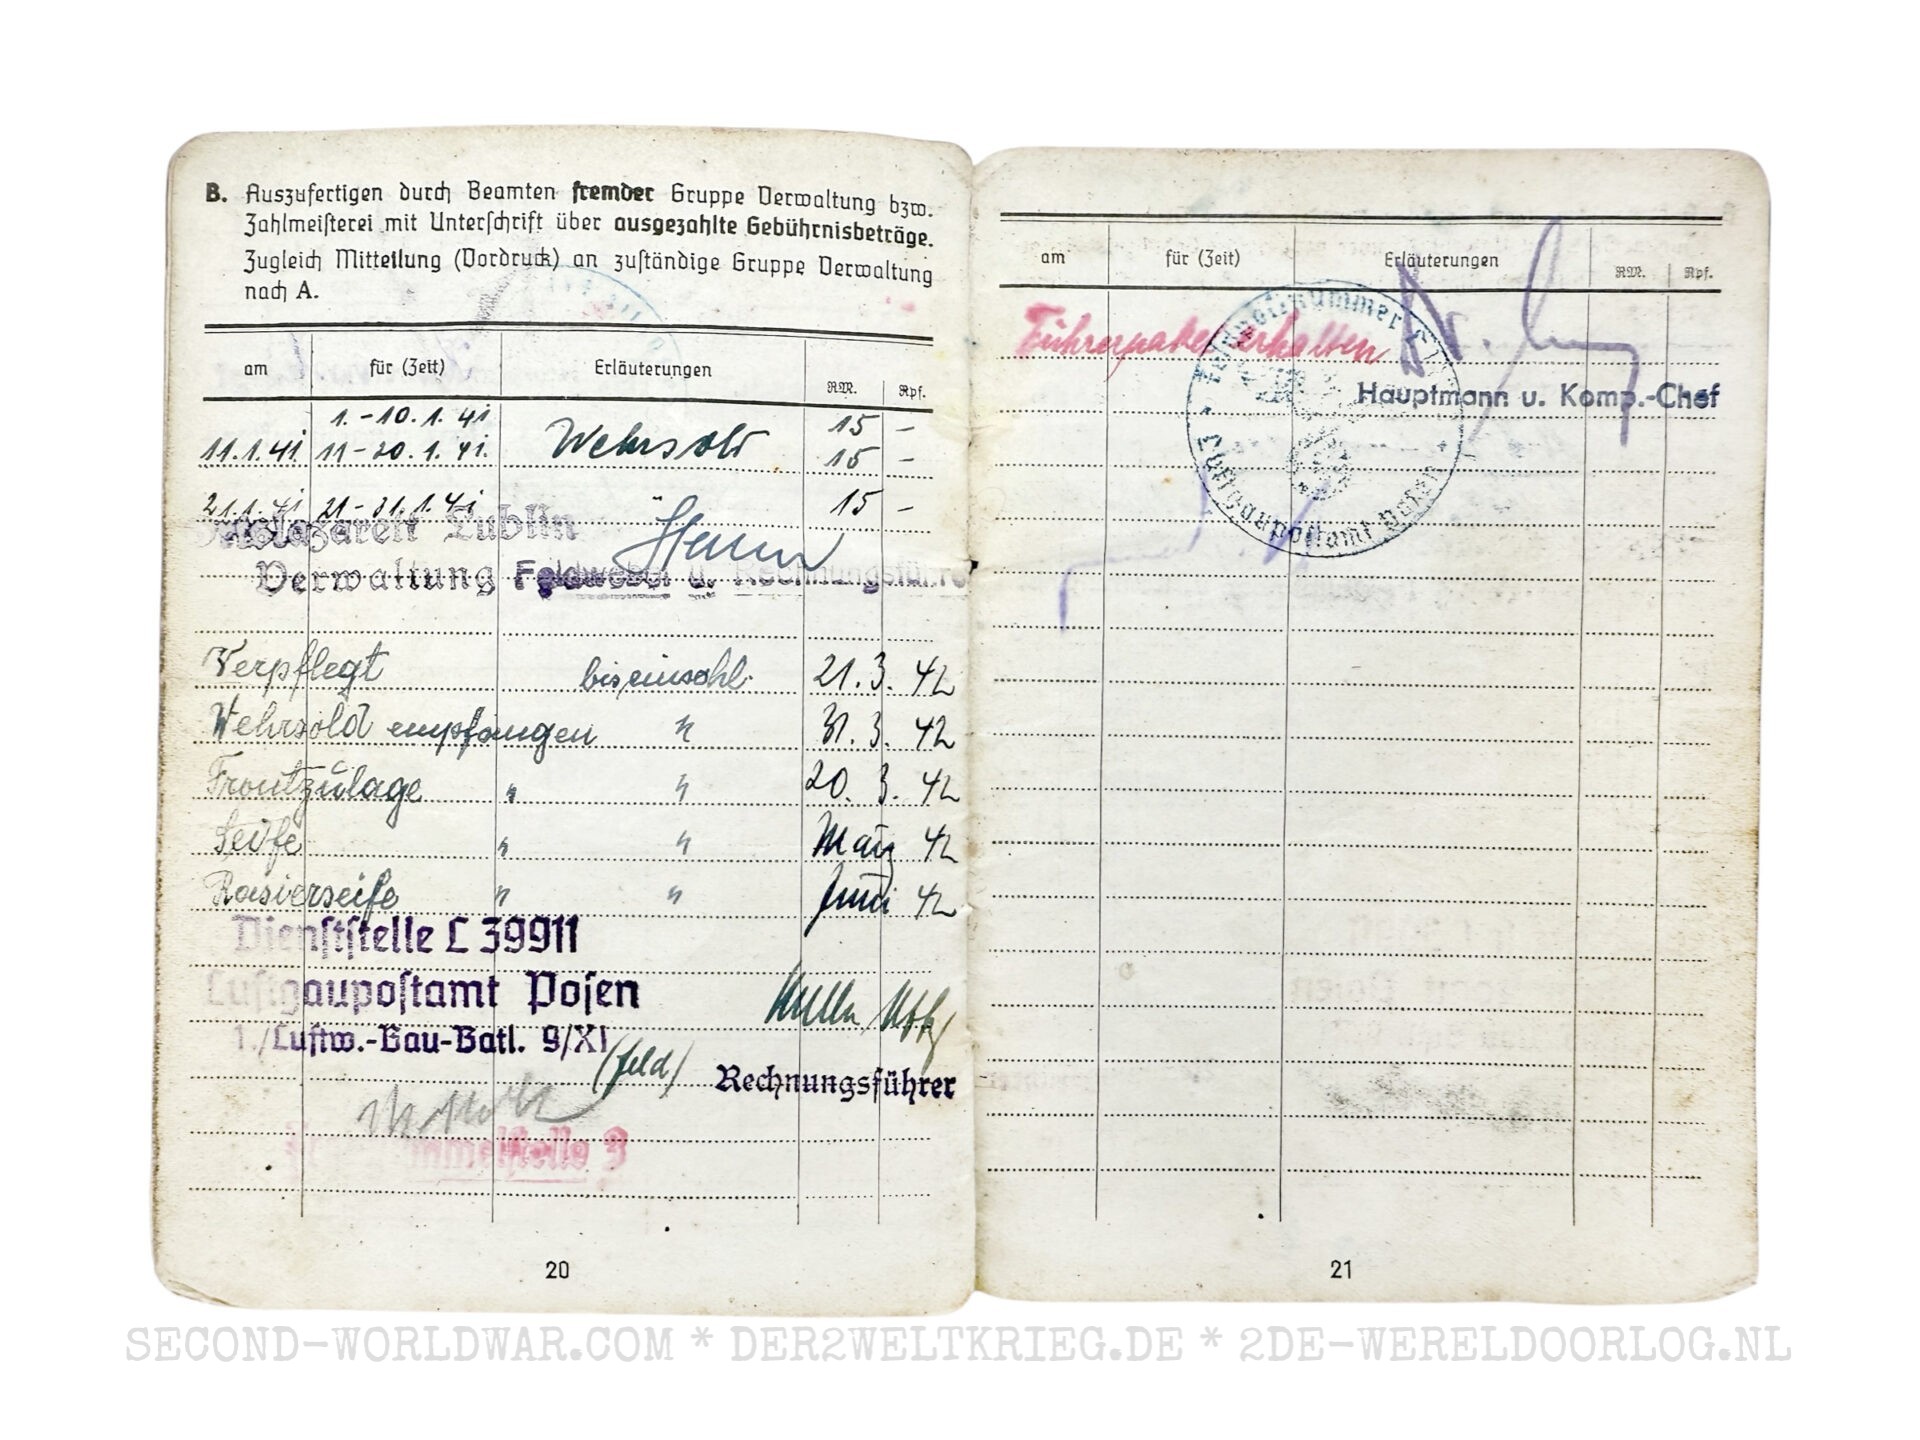 B. Auszufertigen durch Beamten fremder Gruppe Verwaltung bzw.
Zahlmeisterei mit Unterschrift über ausgezahlte Gebührnisbeträge.
Zugleich Mitteilung (Vordruck) an zuständige Gruppe Verwaltung
nach A.
am für (Zeit) Erläuterungen RM. Rpf.
1.-10.1.41 15 -
11.1.41 11-20.1.41. Wehrsold 15 -
21.1.41 21-31.1.41 15 -
Lublin
Verwaltung Feldwebel u. Rechnungsführer
Verpflegt bis einschl. 21.3.42
Wehrsold empfangen " 31.3.42
Frontzulage " " 20.3.42
Seife " " März 42
Rasierseife " " Juni 42
Dienststelle L 39911
Luftgaupostamt Posen
1./Luftw.-Bau-Batl. 9/XI
(feld)
Rechnungsführer
20
am für (Zeit) Erläuterungen RM. Rpf.
Führerpaket erhalten
Hauptmann u. Komp.-Chef
Feldpostnummer
Luftgaupostamt Posen
21
SECOND-WORLDWAR.COM * DER2WELTKRIEG.DE * 2DE-WERELDOORLOG.NL